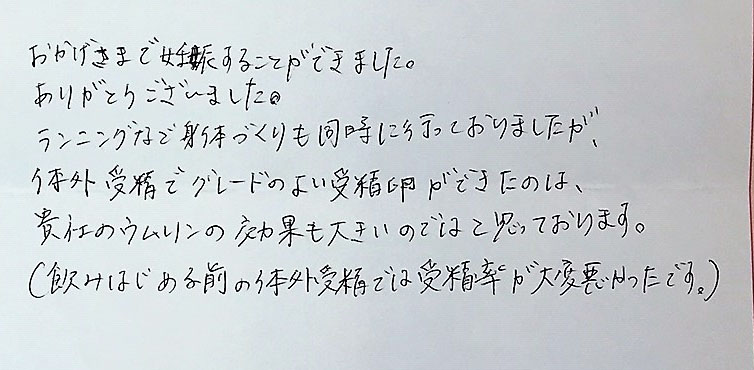 おかげさまで妊娠することができました。
ありがとうございました。
ランニングなど身体づくりも同時に行っておりましたが、
体外受精でグレードのよい受精卵ができたのは、
貴社のウムリンの効果も大きいのではと思っております。
(飲みはじめる前の体外受精では受精率が大変悪かったです。)